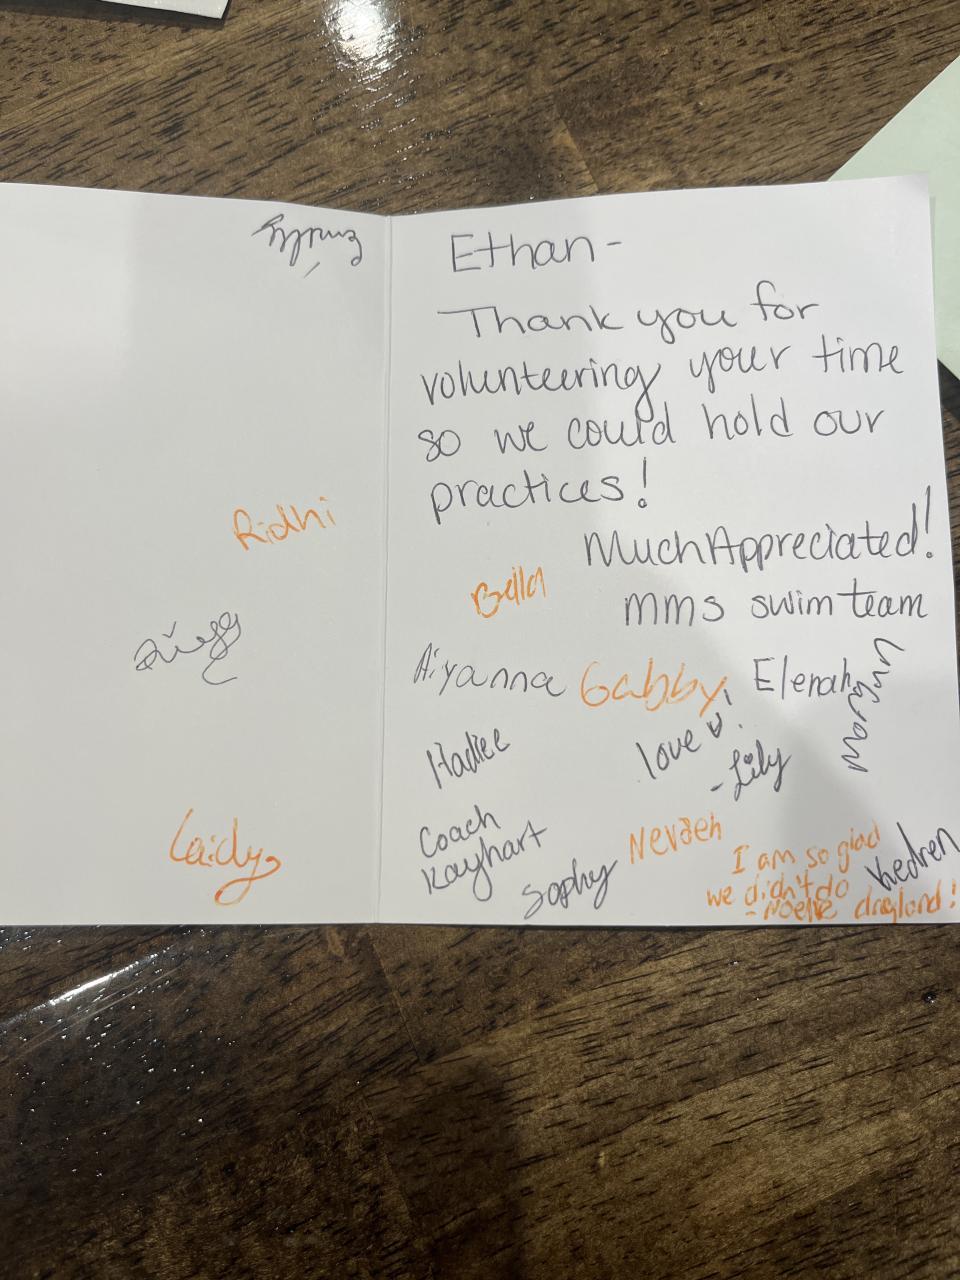 Ethan-
Thank you for
volunteering your time
so we could hold our
practices!
Much Appreciated!
mms swim team
Ridhi
Bella
Aiyanna
Gabby
Elenah
love
-Lily
Coach
Kayhart
Sophy
Nevaeh
I am so glad
we didn't do
dryland!
-Noelle
Laidy